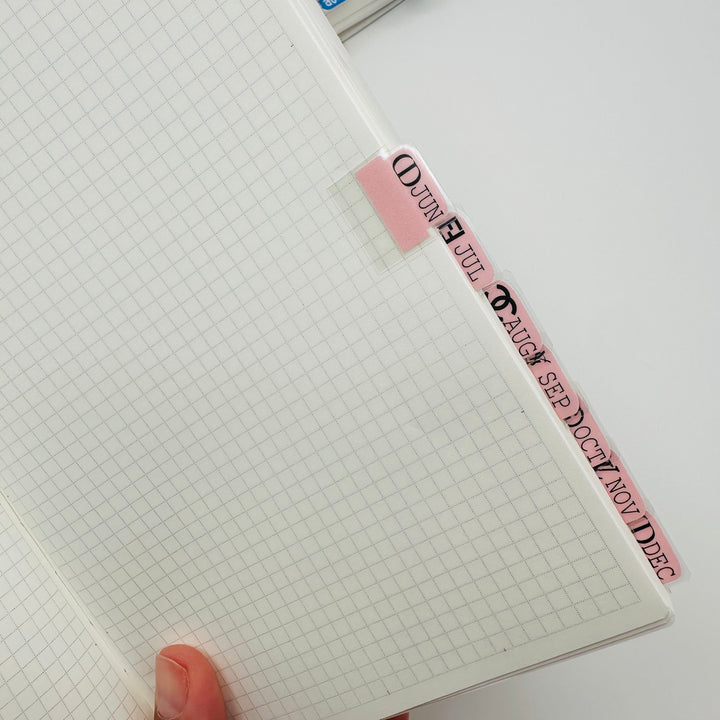 JUN
JUL
AUG
SEP
OCT
NOV
DEC